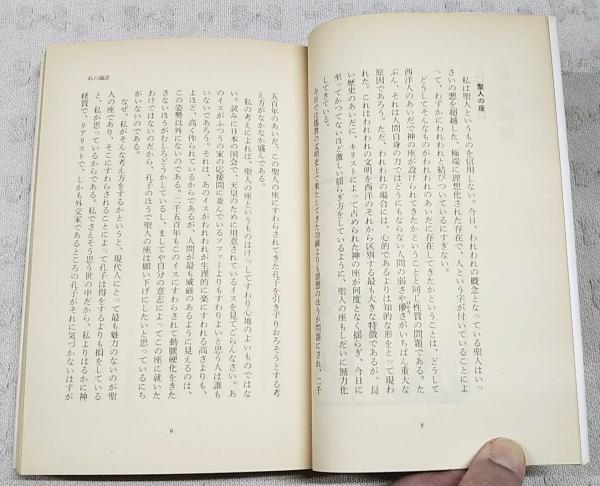 聖人の座
私は聖人というものを信用しない。今日、われわれの概念となっている聖人はいっ
さいの悪を超越した、極端に理想化された存在で、人という字が付いていることによ
って、わずかにわれわれと結びついているにすぎない。
どうしてそんなものがわれわれのあいだに存在してきたかということは、どうして
西洋人のあいだで神の座が設けられてきたかということと同じ性質の問題である。た
ぶん、それは人間自身の力ではどうにもならない人間の弱さや儚さがいちばん重大な
原因であろう。ただ、われわれの場合には、心的であるよりは知的な形をとって現わ
れた。これはわれわれの文明を西洋のそれから区別する最も大きな特徴であるが、長
い歴史のあいだに、キリストによって占められた神の座が何度となく揺らぎ、今日に
至ってかつてないほど激しい揺らぎ方をしているように、聖人の座もしだいに無力化
してきている。
今日では儒教の文明史上で果たしてきた功績よりも罪過のほうが問題にされ、二千
8
私の論語
五百年のあいだ、この聖人の座にすわらされてきた孔子を引きずりおろそうとする考
え方がなかなか盛んである。
私の考えによれば、聖人の座というものはけっしてすわり心地のよいものではな
い。試みに日本の国会で、天皇のために用意されているイスを見てごらんなさい。あ
のイスがふつうの家の応接間に並んでいるソファーよりもすわりよいと思う人は誰も
いないであろう。それは、あのイスがわれわれが生理的に楽にすわれる高さよりも、
よほど高く作られているからであるが、人間が最も威厳のあるように見えるのは、
この姿勢以外にないのである。二千五百年もこのイスにすわらされて動脈硬化をきた
さないほうがむしろどうかしているし、ましてや自分の意志によってこの座に就いた
わけではないのだから、孔子のほうで聖人の座は願い下げにしたいと思っているにち
がいないのである。
なぜ、私がそんな考え方をするかというと、現代人にとって最も魅力のないのが聖
人の座であり、そこにすわらされることによって孔子は得をするよりも損をしている
と、私が思っているからである。私でさえそう思う世の中だから、私よりはるかに神
経質で、リアリストで、しかも外交家であるところの孔子がそれに気づかないはずが
9